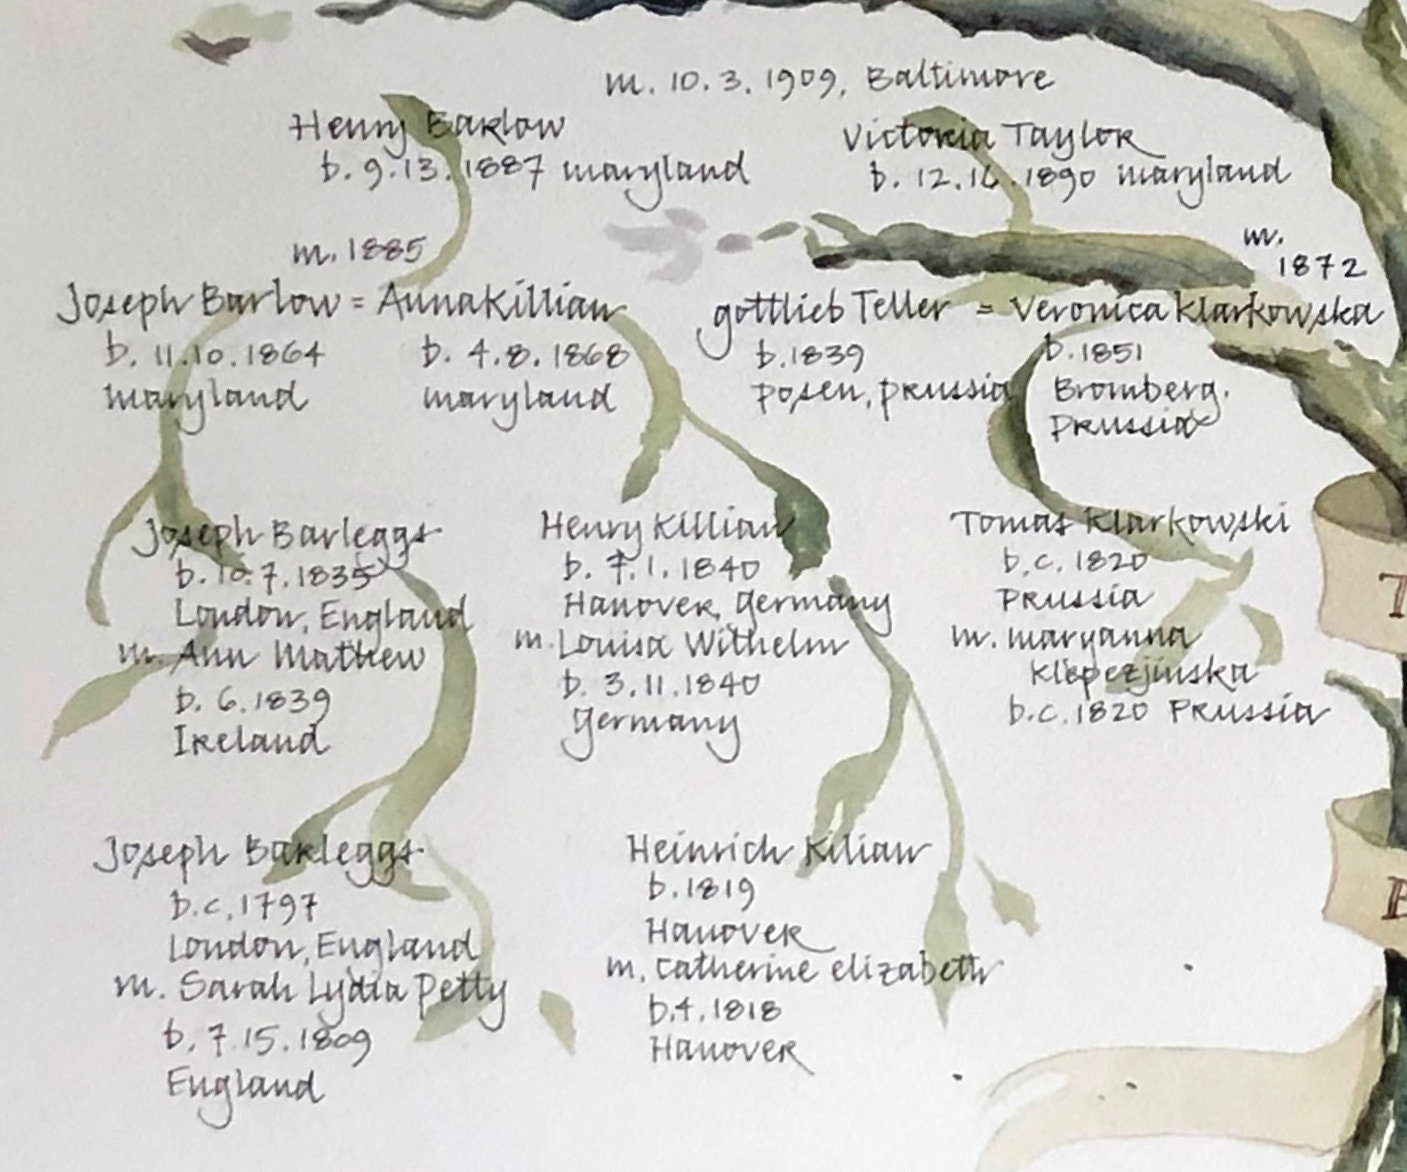 m. 10.3.1909, Baltimore
Henry Barlow
b. 9.13.1887 maryland
Victoria Taylor
b. 12.16.1890 maryland
m. 1885
Joseph Barlow = Anna Killian
b. 11.10.1864
maryland
b. 4.8.1868
maryland
m.
1872
gottlieb Teller = Veronica Klarkowska
b. 1839
Posen, Prussia
b. 1851
Bromberg.
Prussia
Joseph Barleggs
b. 10.7.1835
London, England
m. Ann Mathew
b. 6.1839
Ireland
Henry Killian
b. 7.1.1840
Hanover, Germany
m. Louisa Withelm
b. 3.11.1840
Germany
Tomas Klarkowski
b.c. 1820
Prussia
m. maryanna
Klepezjinska
b.c. 1820 Prussia
Joseph Barleggs
b.c. 1797
London, England
m. Sarah Lydia Petty
b. 7.15.1809
England
Heinrich Kilian
b. 1819
Hanover
m. Catherine elizabeth
b.4.1818
Hanover
T